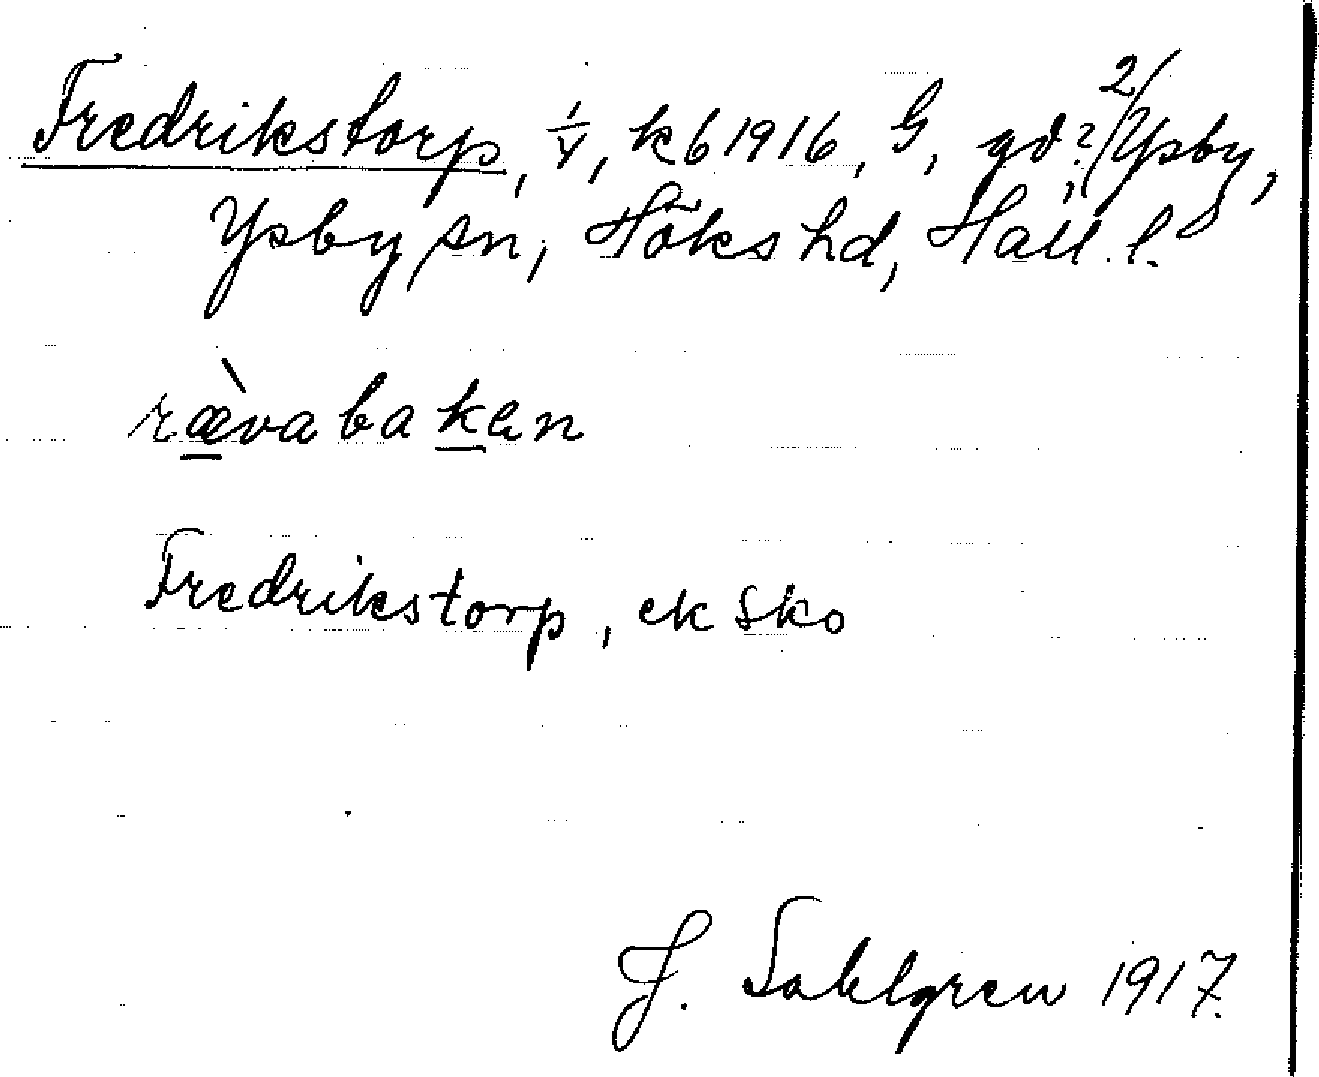 Fredrikstorp, 1/4, kb 1916, G, gd? 2/Ysby,
Ysby sn, Höks hd, Hall. l.
rævabakan
Fredrikstorp, ek Sko
J. Sahlgren 1917.